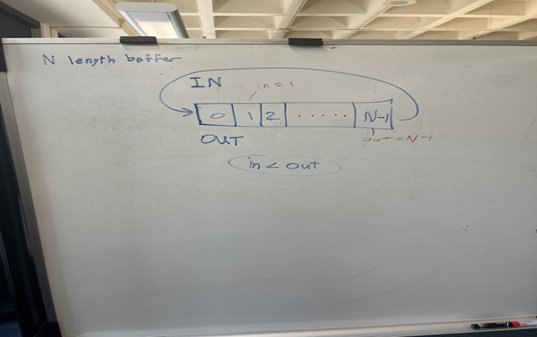 N length buffer
IN
in = 1
0 1 2 ..... N-1
OUT
out = N-1
in < out